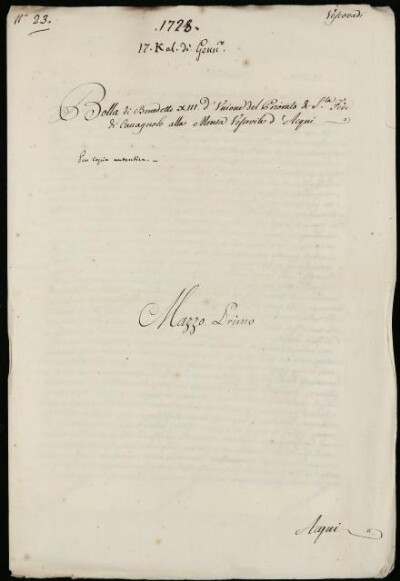 N° 23.
Vescovadi
1728.
17. Kal. di Genn.°
Bolla di Benedetto XIII. d'Unione del Priorato di S.ta Fede
di Cavagnolo alla Mensa Vescovile d'Acqui
Con copia autentica.
Mazzo Primo
Acqui